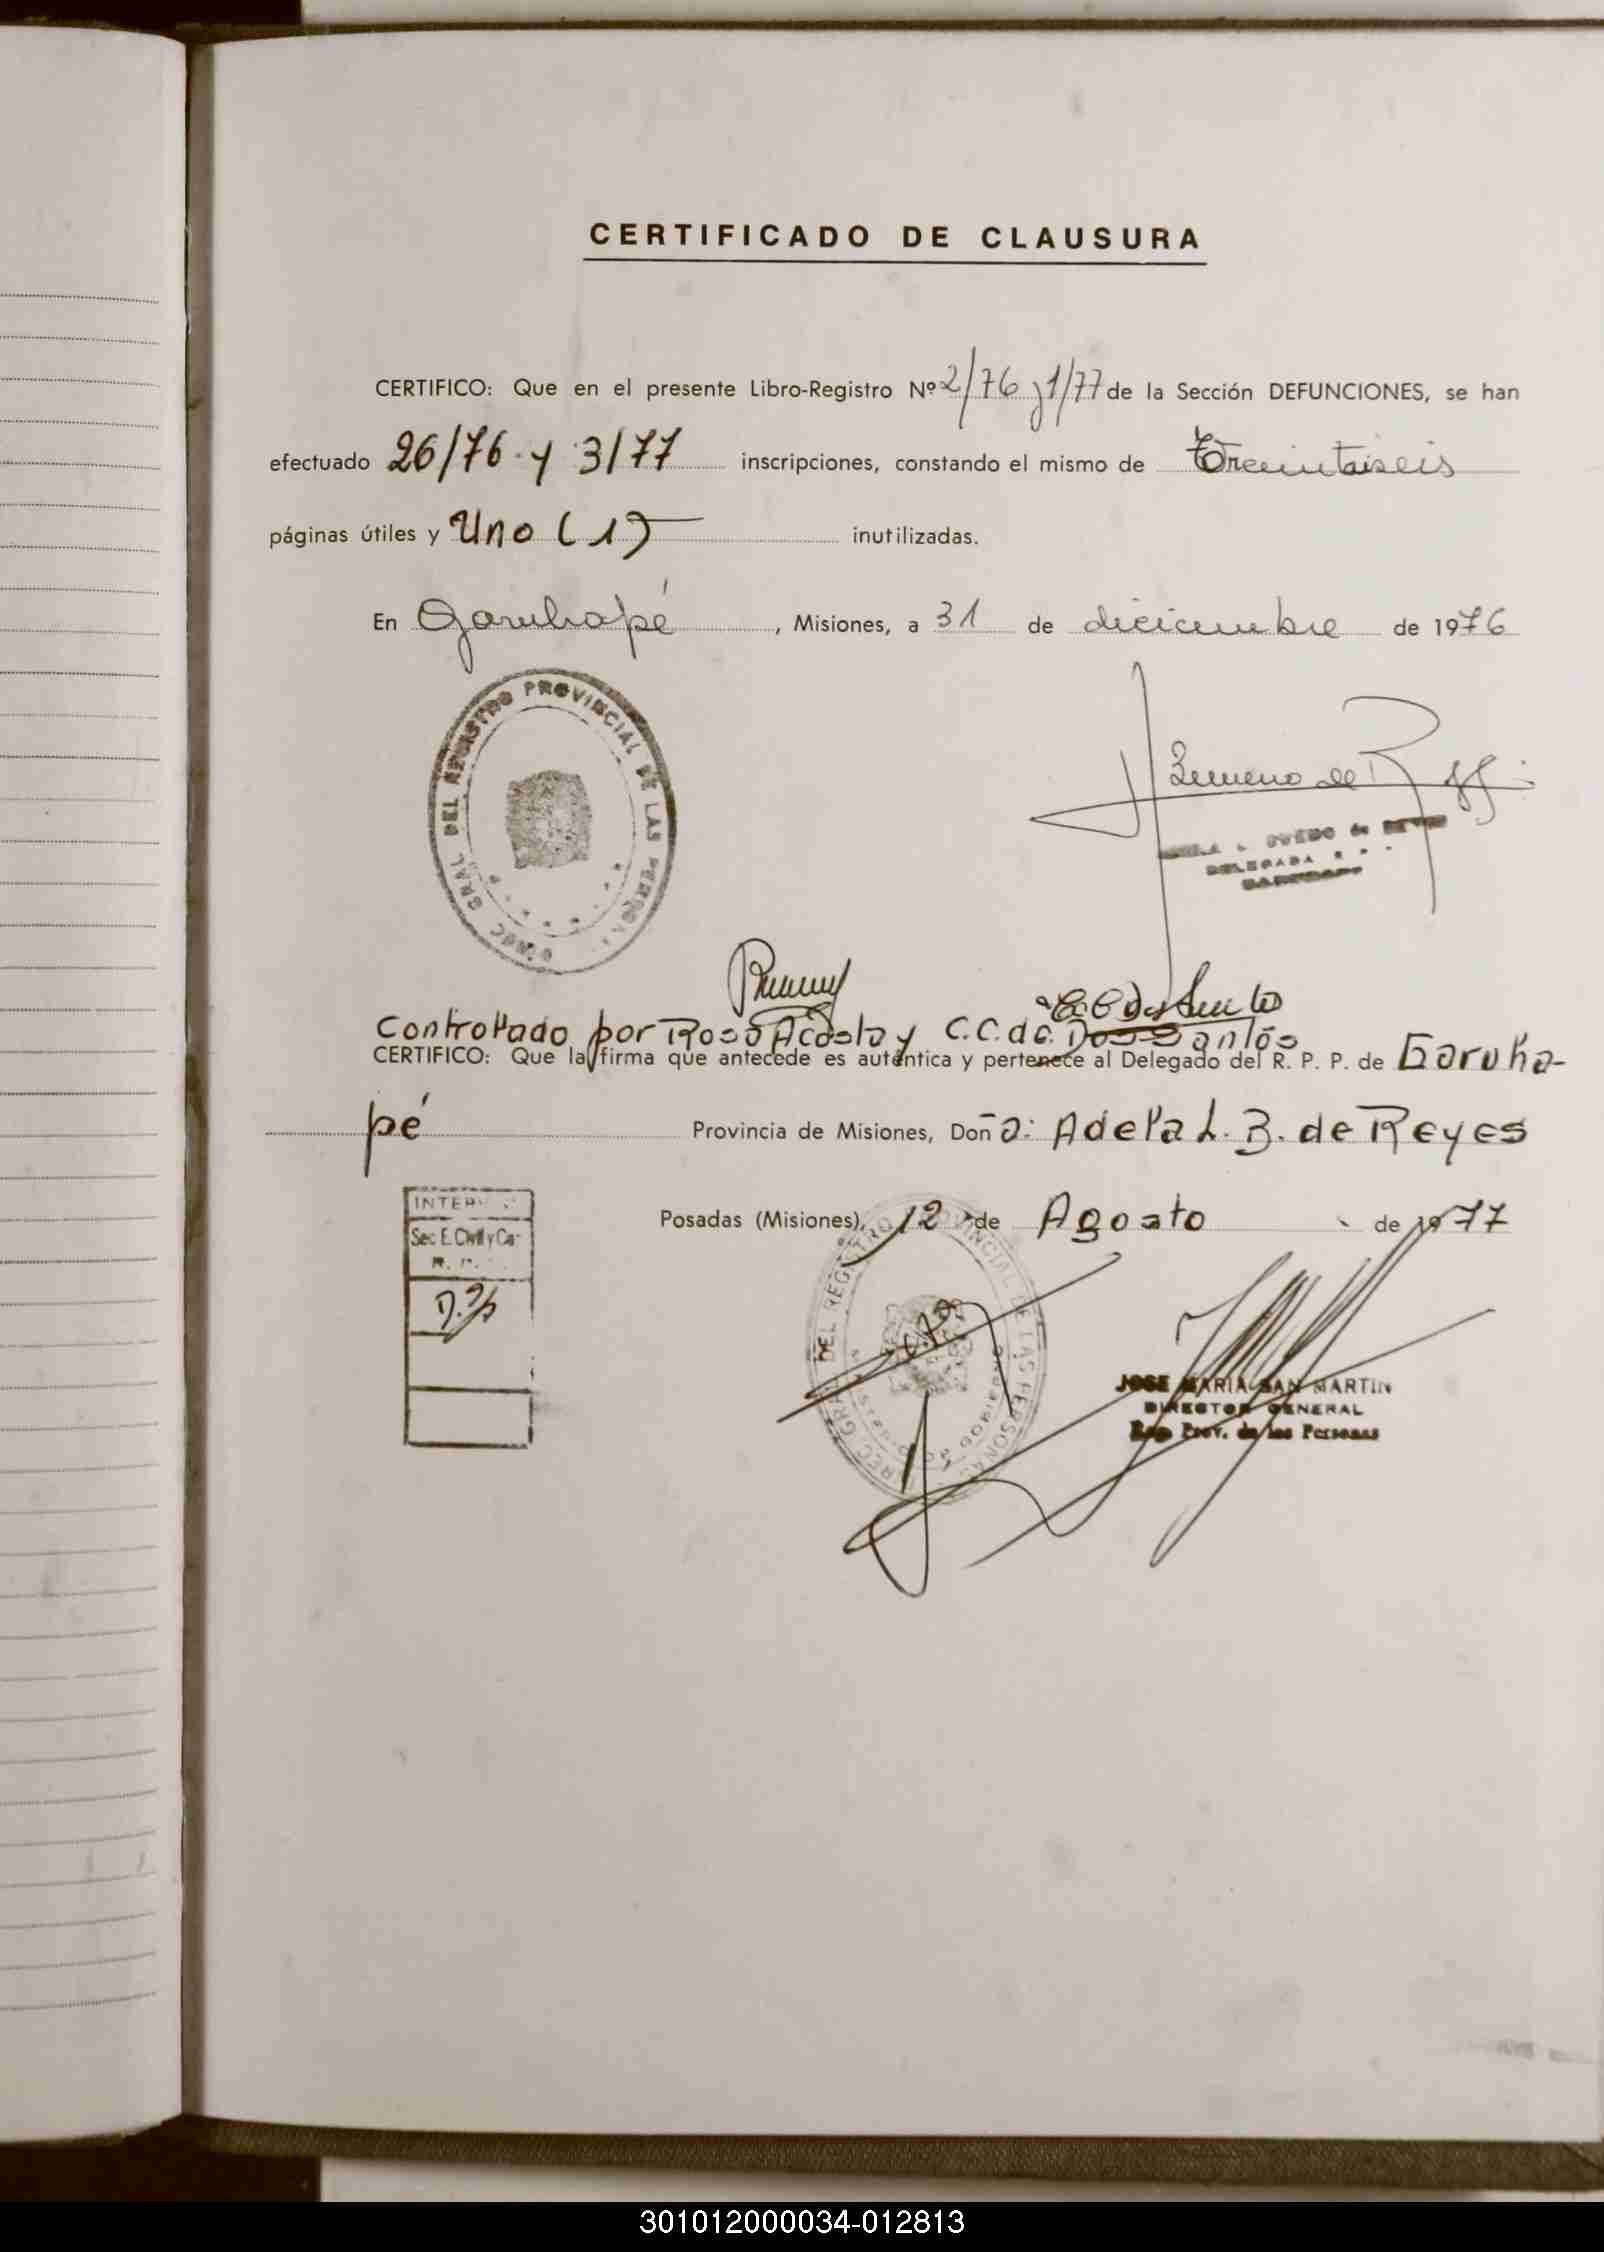 CERTIFICADO DE CLAUSURA
CERTIFICO: Que en el presente Libro-Registro Nº 2/76 y 1/77 de la Sección DEFUNCIONES, se han
efectuado 26/76 y 3/77 inscripciones, constando el mismo de Treintaiseis
páginas útiles y Uno (1) inutilizadas.
En Garuhapé, Misiones, a 31 de diciembre de 1976
DIREC GRAL DEL REGISTRO PROVINCIAL DE LAS PERSONAS
DELEGADA
Controlado por Rosa Acosta y C.C. de Dos Santos
CERTIFICO: Que la firma que antecede es auténtica y pertenece al Delegado del R. P. P. de Garuha-
pé Provincia de Misiones, Doña: Adela L. B. de Reyes
Posadas (Misiones), 12 de Agosto de 1977
Sec E. Civil y Ca-
DIREC GRAL DEL REGISTRO PROVINCIAL DE LAS PERSONAS
JOSE MARIA SAN MARTIN
DIRECTOR GENERAL
Reg. Prov. de las Personas
301012000034-012813